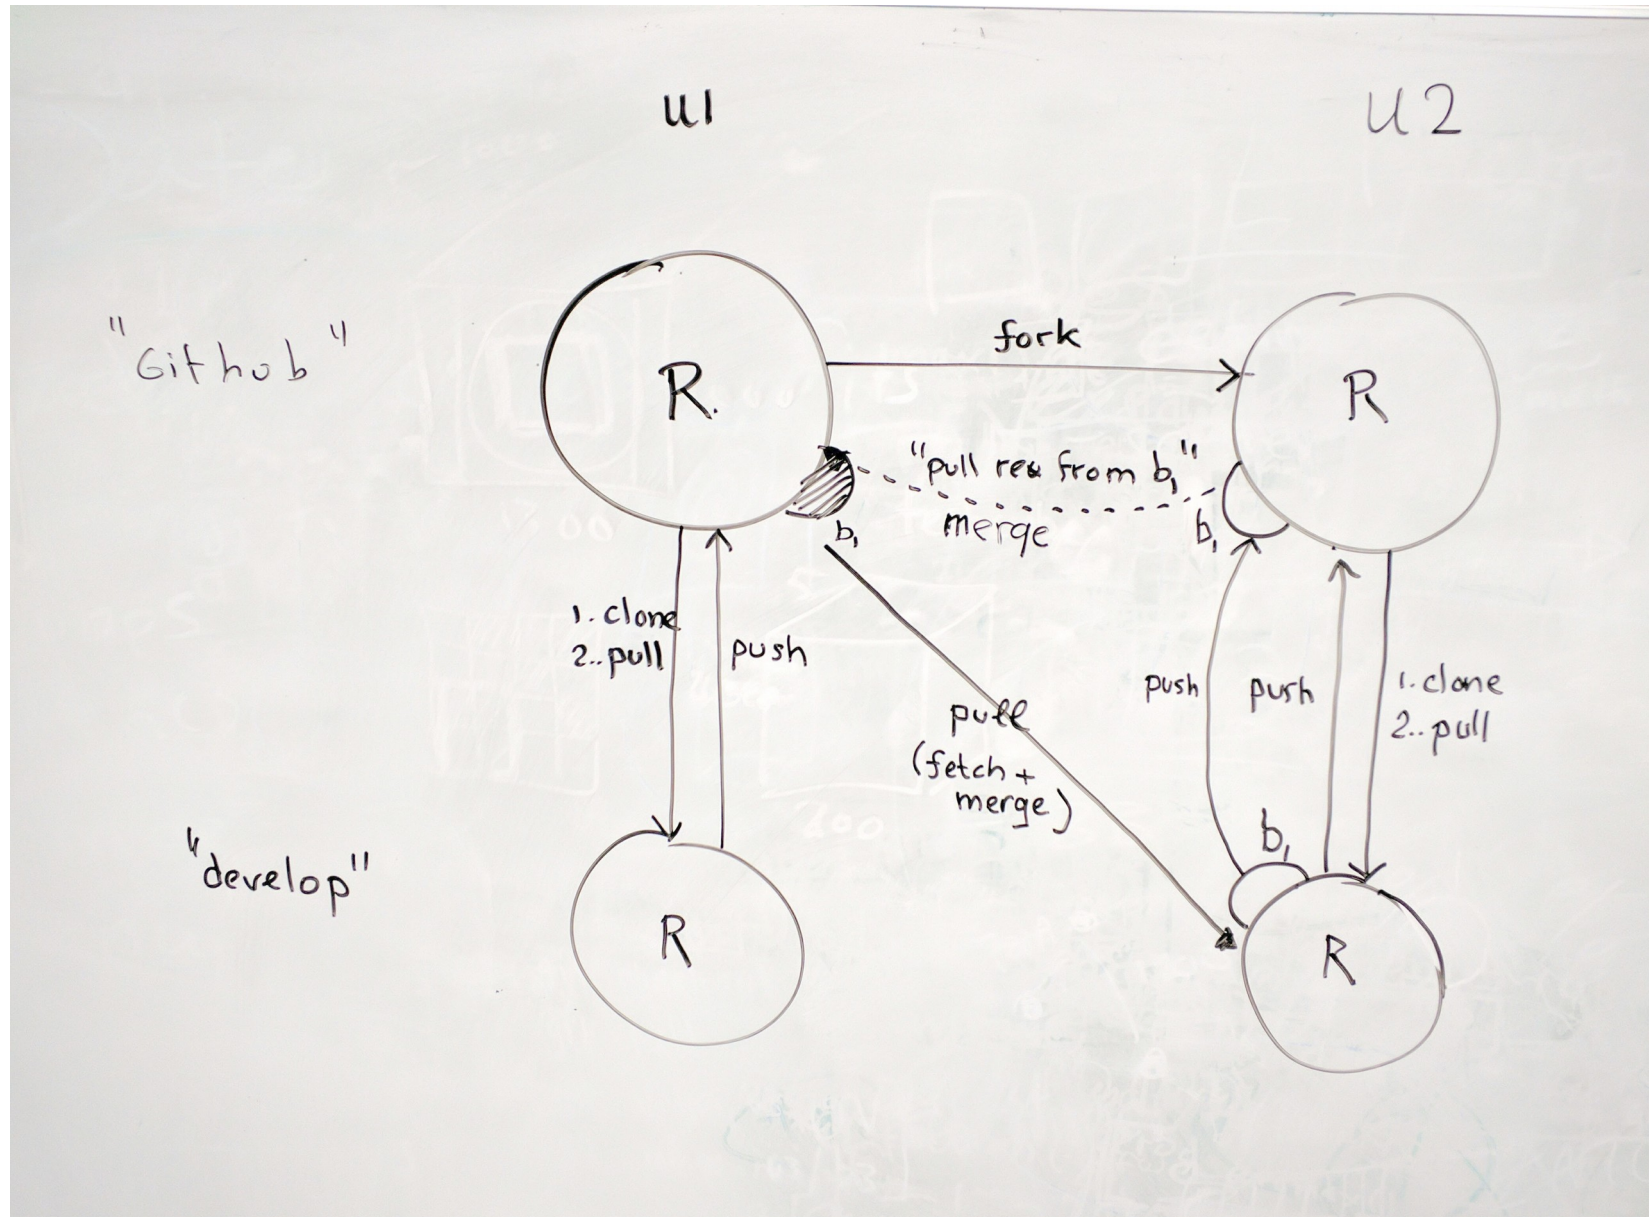 U1
U2
"Github"
R.
fork
R
"pull req from b1"
merge
b1
b1
1. clone
2..pull
push
pull
(fetch +
merge)
push
push
1. clone
2..pull
"develop"
b1
R
R